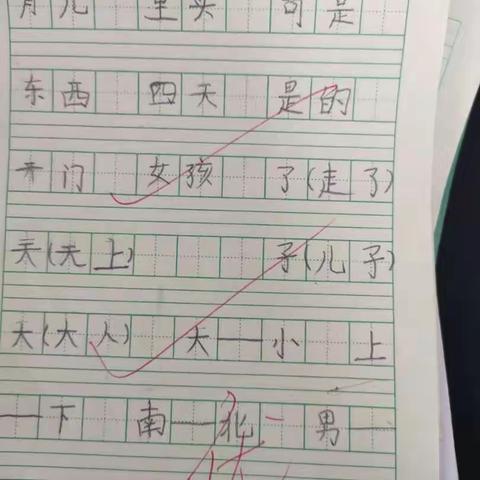 儿 里头 可是
东西 四天 是的
开门 女孩 了(走了)
天(天上) 子(儿子)
大(大人) 大—小 上
—下 南—北 男—